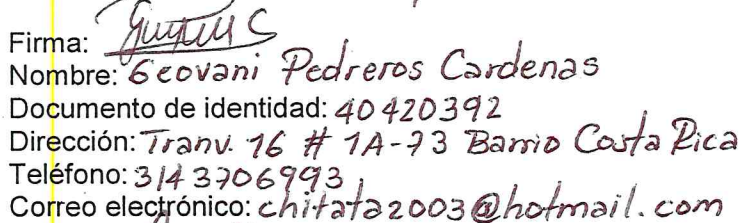 Firma:
Nombre: Geovani Pedreros Cardenas
Documento de identidad: 40420392
Dirección: Tranv. 16 # 1A-73 Barrio Costa Rica
Teléfono: 314 3706993
Correo electrónico: chitata2003@hotmail.com